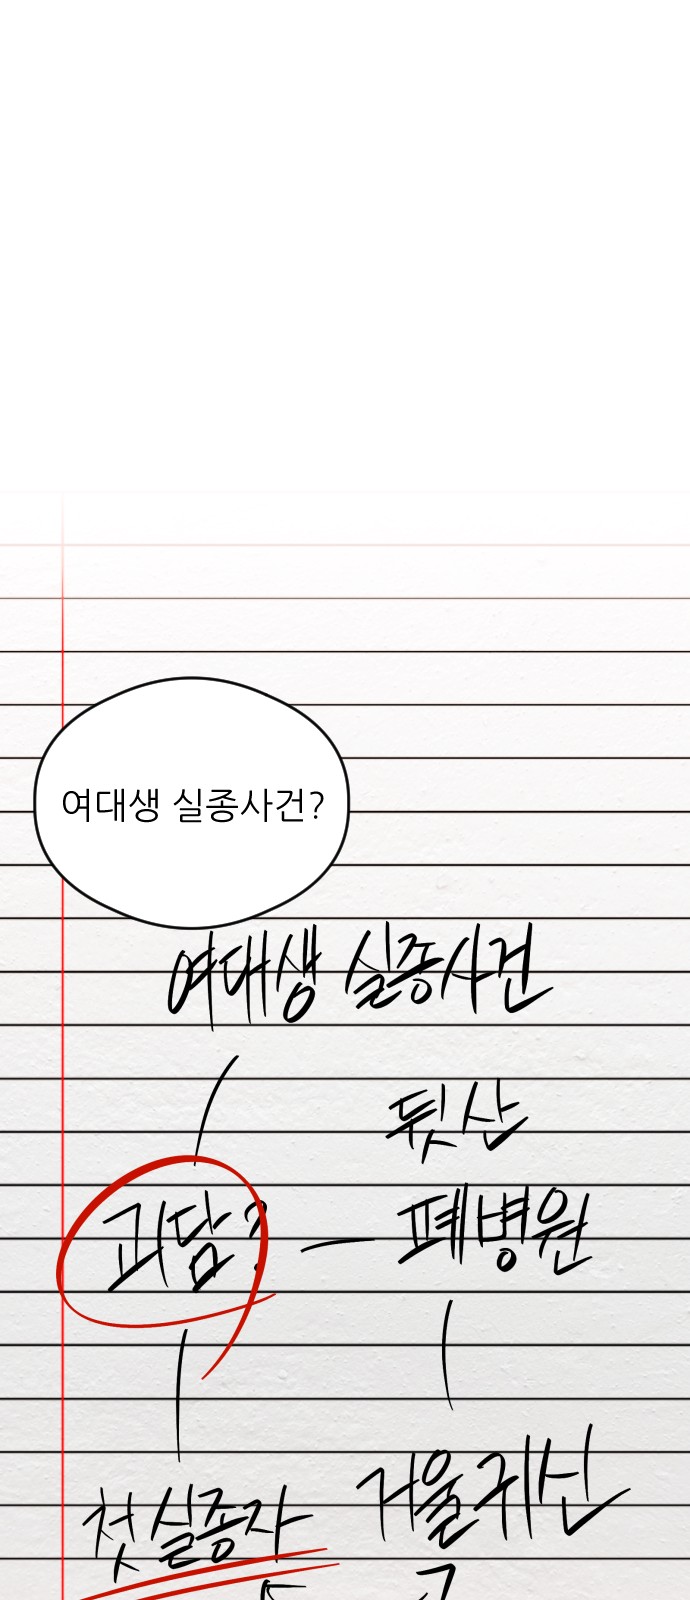 여대생 실종사건?
여대생 실종사건
뒷산
괴담? 폐병원
첫 실종자 거울귀신